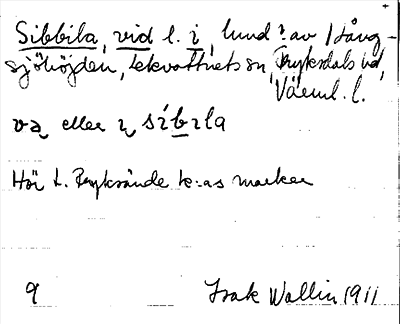 Sibbila, vid l. i, lund ? av Långsjöhöjden, Lekvattnets sn, Fryksdals hd, Värml. l.
va eller ɩ síbɩla
Hör t. Fryksände k:as marker
9 Isak Wallin 1911